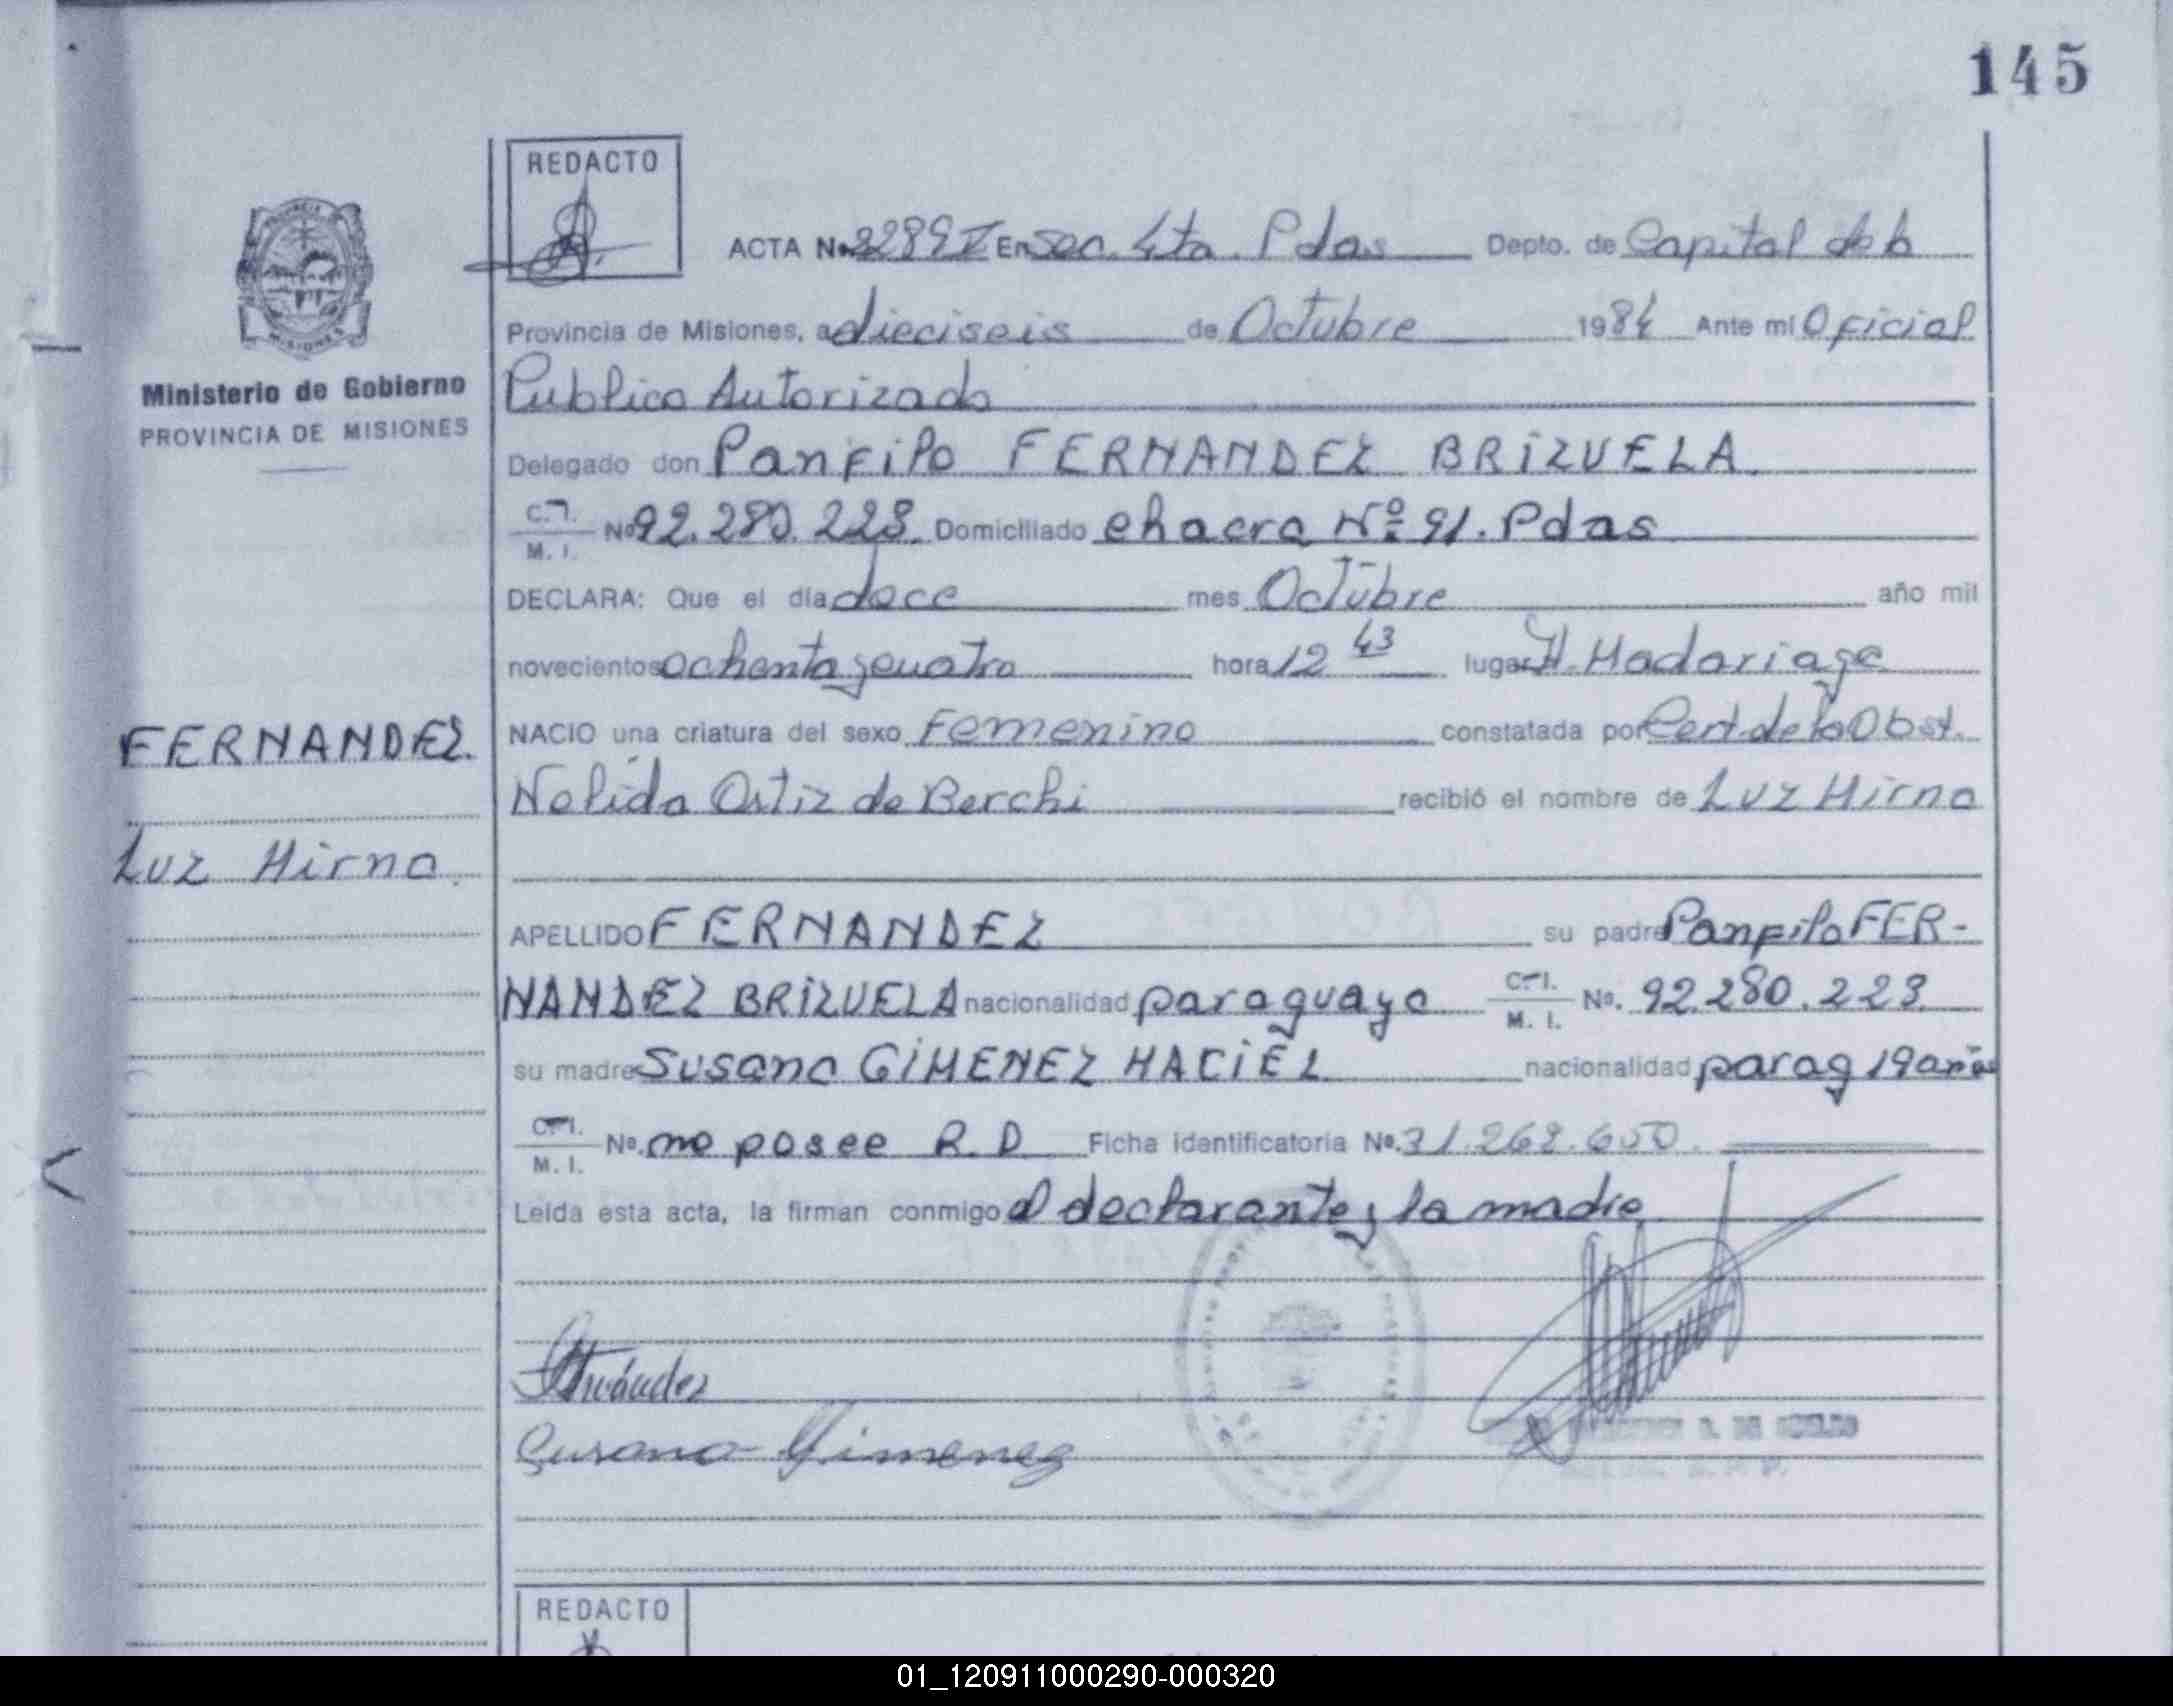 145
REDACTO
ACTA No 2289 I En Sec. 4ta. Pdas Depto. de Capital de la
Provincia de Misiones, a dieciseis de Octubre 1984 Ante mi Oficial
Publico Autorizado
Ministerio de Gobierno
PROVINCIA DE MISIONES
Delegado don Panfilo FERNANDEZ BRIZUELA
C. I.
M. I.
No 92.280.223. Domiciliado chacra Nº 91. Pdas
DECLARA: Que el día doce mes Octubre año mil
novecientos ochenta y cuatro hora 12 43 lugar H. Madariaga
NACIO una criatura del sexo Femenino constatada por Cert. de la Obst.
Nelida Ortiz de Berchi recibió el nombre de Luz Mirna
FERNANDEZ.
Luz Mirna.
APELLIDO FERNANDEZ su padre Panfilo FER-
NANDEZ BRIZUELA nacionalidad paraguaya C. I.
M. I.
No. 92.280.223
su madre Susana GIMENEZ MACIEL nacionalidad parag 19 años
C. I.
M. I.
No. no posee R. D Ficha identificatoria No. 31.262.650.
Leida esta acta, la firman conmigo el declarante y la madre
Susana Gimenez
REDACTO
01_120911000290-000320